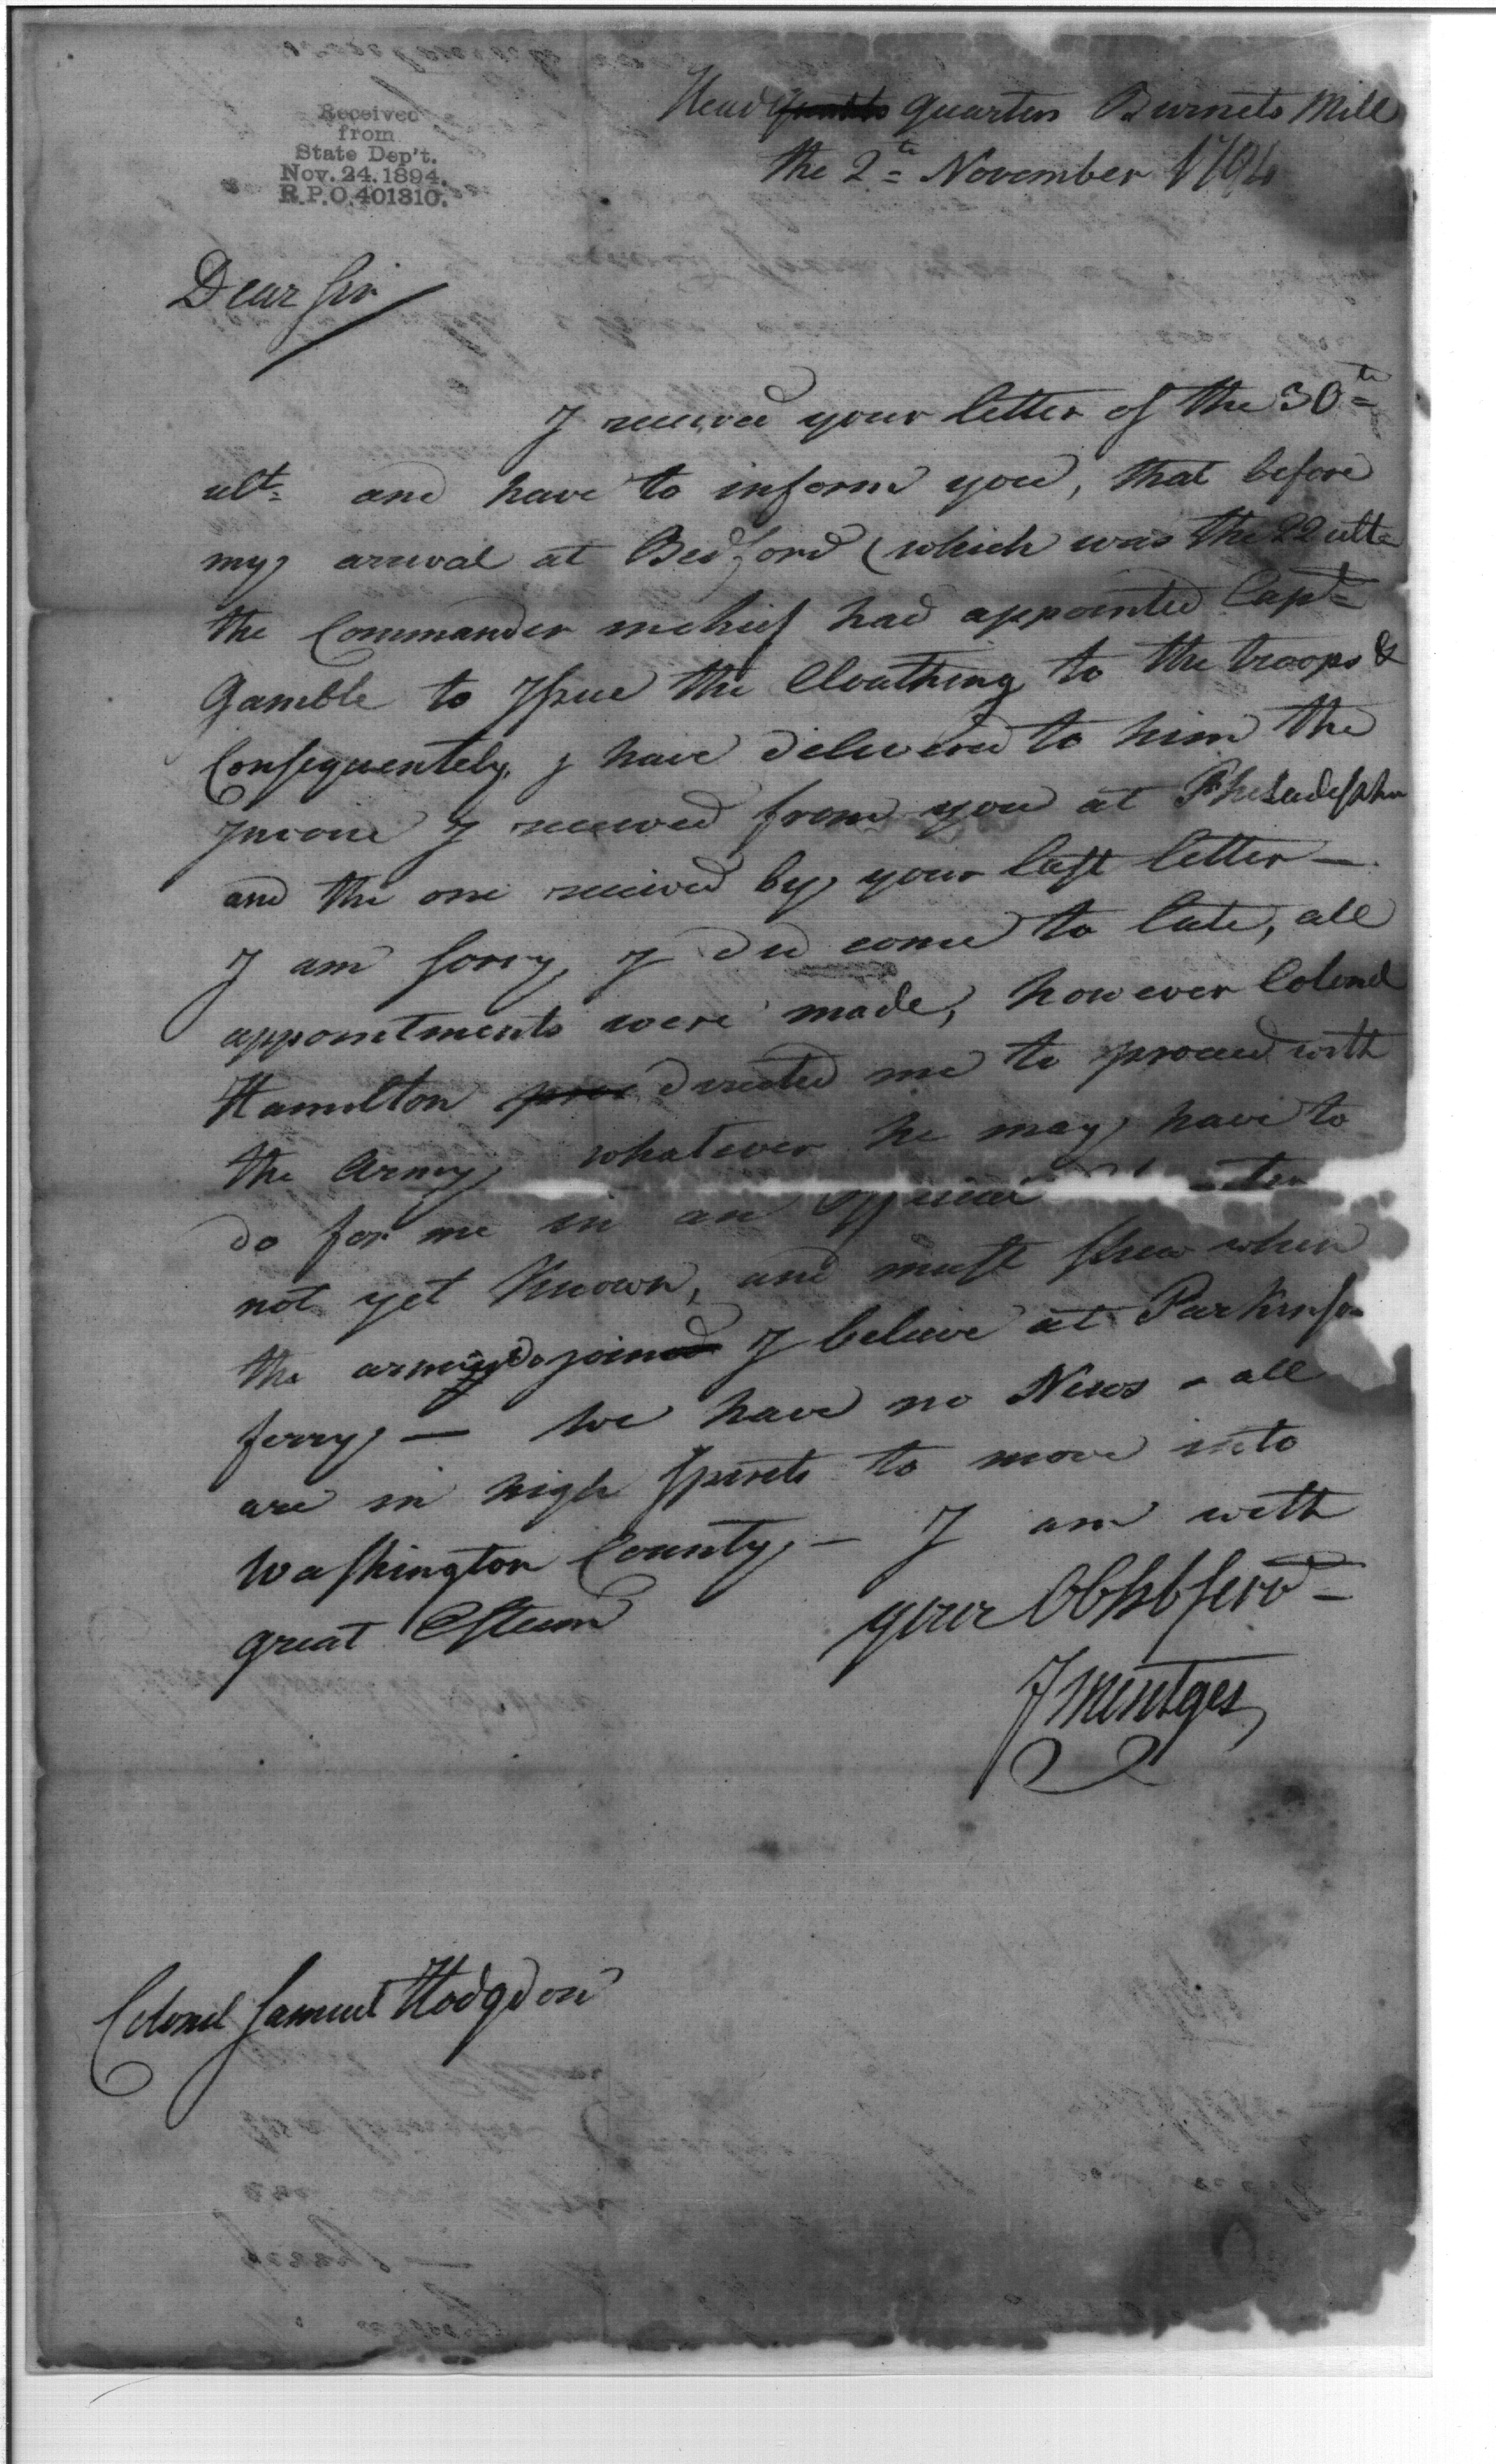 Received
from
State Dep't.
Nov. 24. 1894.
R.P.O. 401310.
Head quarters Burnets Mill
the 2te November 1794
Dear Sir
I received your letter of the 30te
ult. and have to inform you, that before
my arrival at Bedford (which was the 22 ulto
the Commander inchief had appointed Capt
Gamble to Issue the Cloathing to the troops &
Consequentely, I have delivered to him the
Invoice I received from you at Philadelphia
and the one received by your last letter —
I am sorry, I did come to late, all
appointments were made, however Colonel
Hamilton directed me to proceed with
the Army, whatever he may have to
do for me in an
not yet Known, and must shew when
the army do join I believe at Parkinson
ferry, — We have no News - all
are in high Spirits to move into
Washington County, — I am with
great Esteem
your Obht Servt
F Mentges
Colonel Samuel Hodgdon